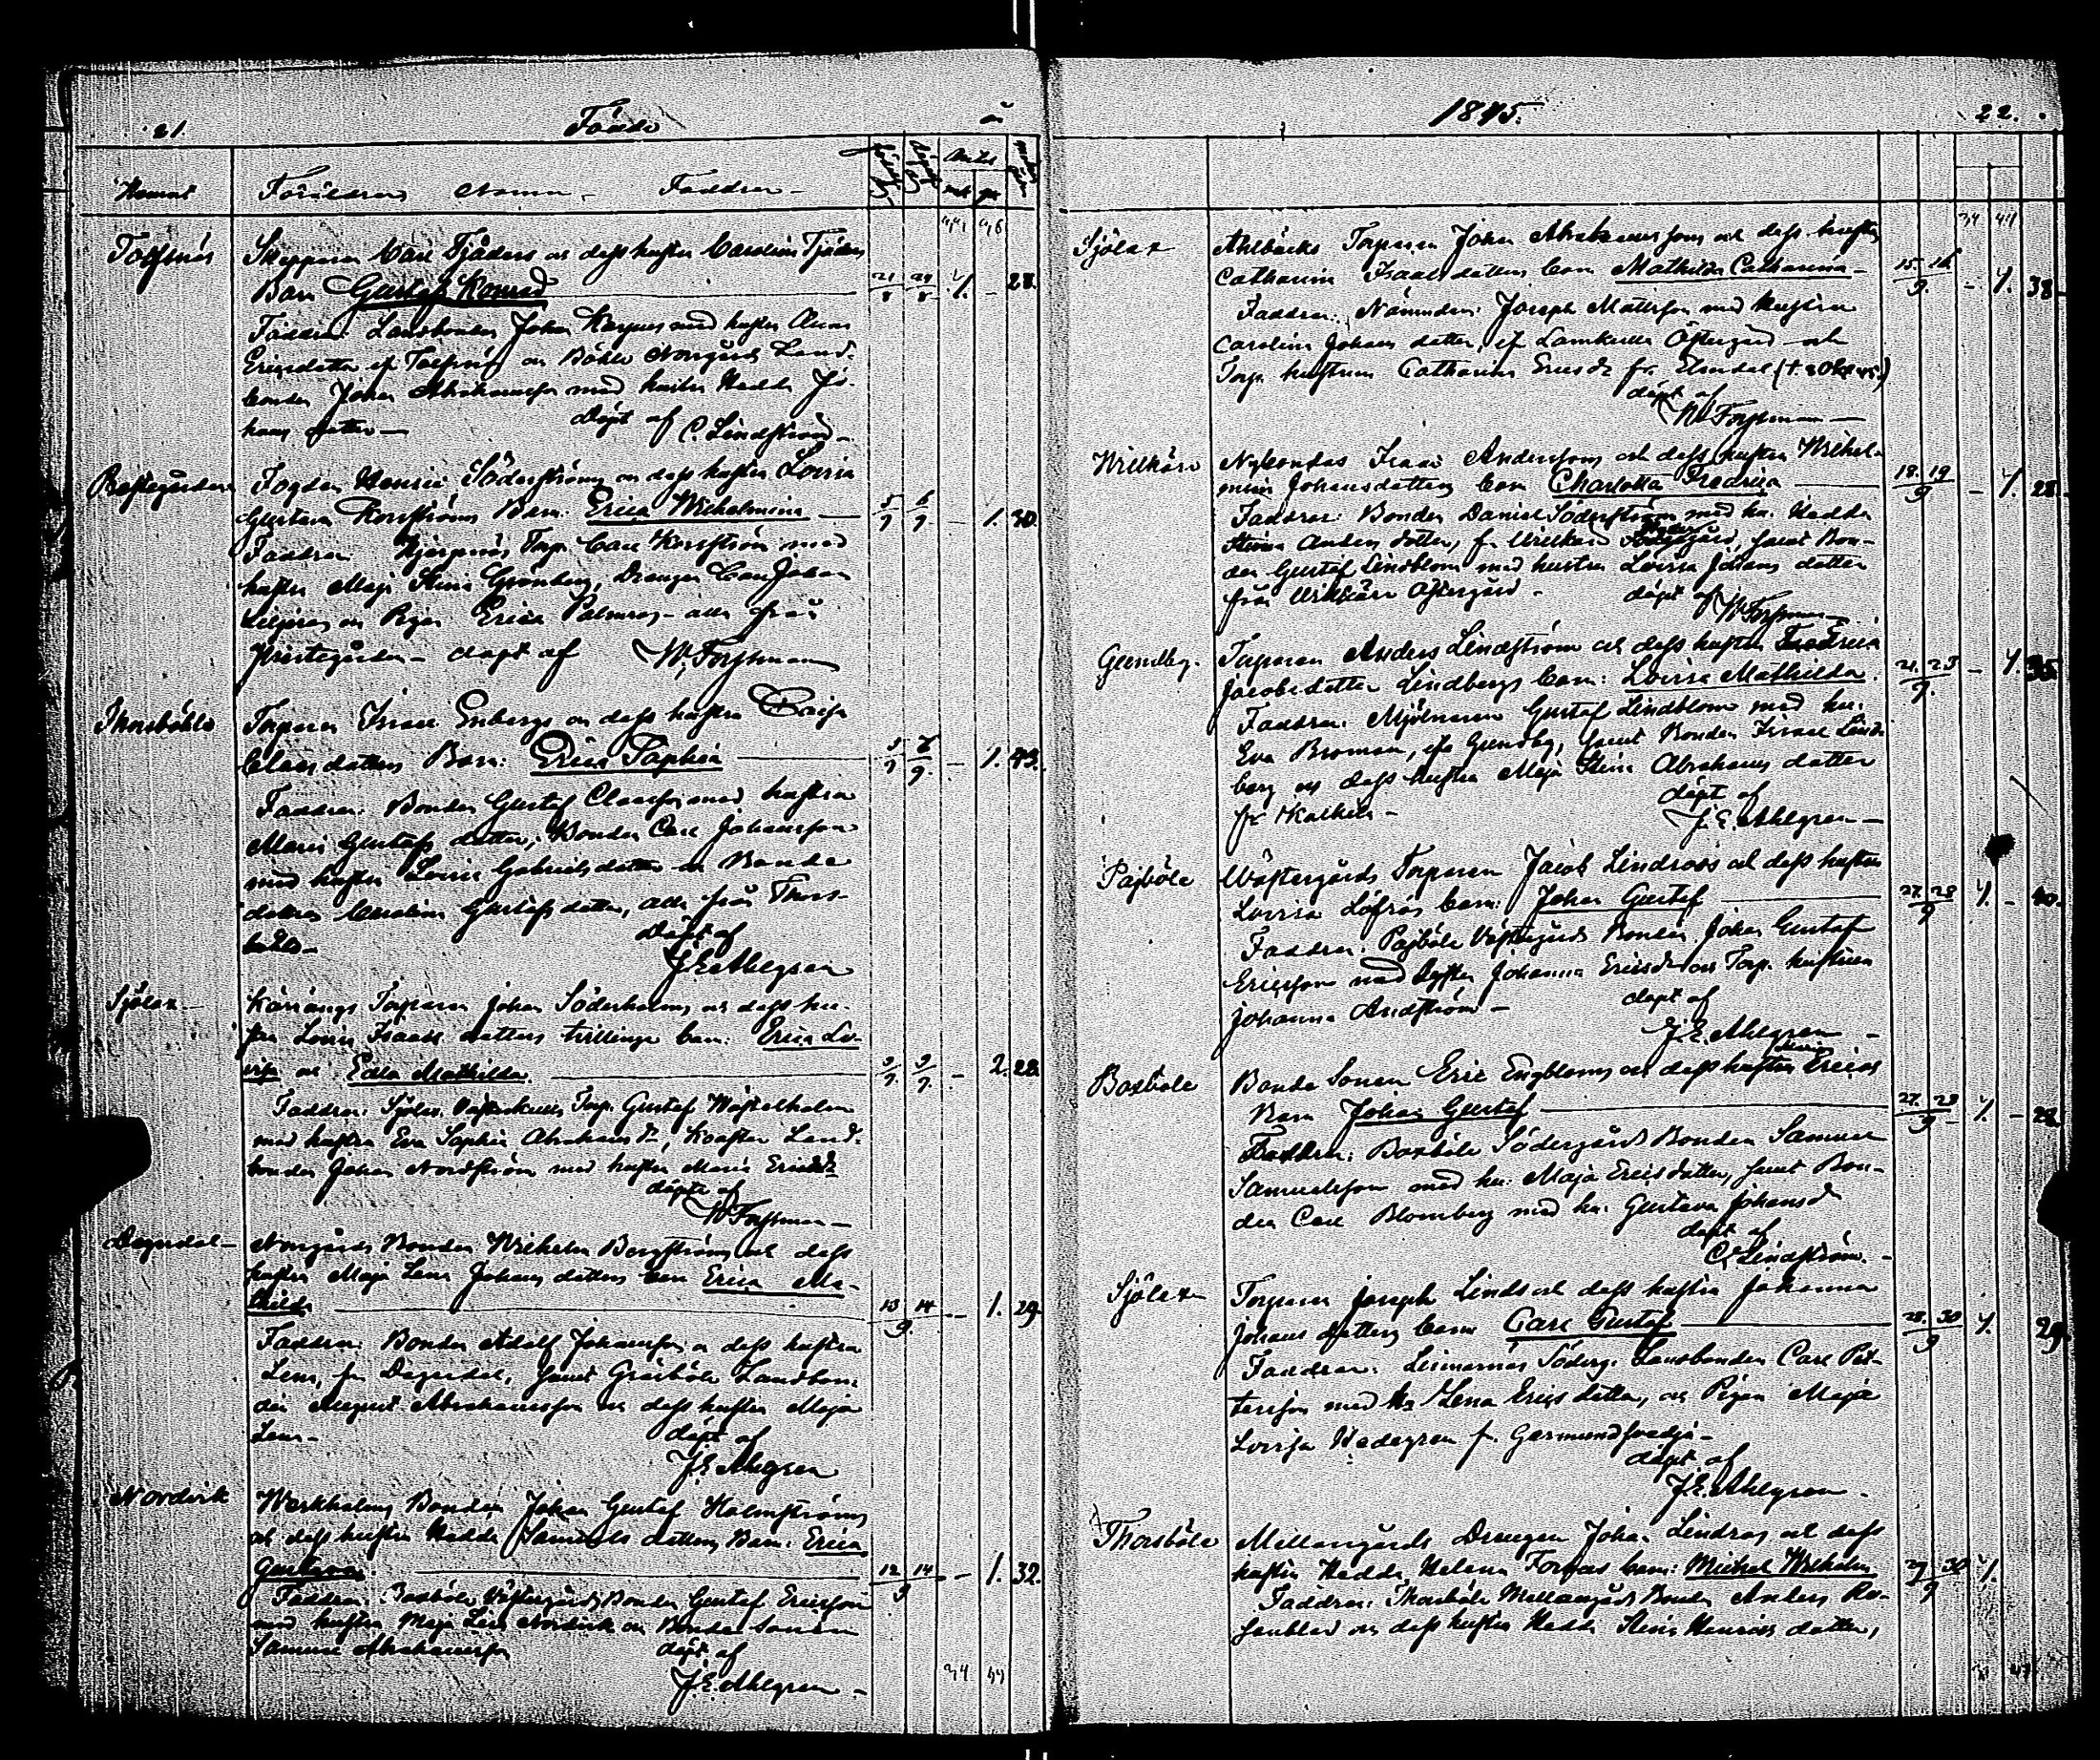 21. Födde å
Hemvist Föräldrar Namn Faddrar
Skepparen Carl Tjäders och dess hustru Carolina Tjäders
Barn Gustaf Konrad 21/8 24/8 1. - 28.
Faddrar: Landbonden Johan med hustru
Ericsdotter och Böhle Norrgårds Land-
bonden Johan Abrahamsson med hustru Hedda Jo-
hans dotter —
Döpt af C. Lindström —
Prestegården Fogden Henric Söderströms och dess hustru Lovisa
Gustava Korsströms Barn: Erica Wilhelmina — 5/9 6/9 - 1. 30.
Faddrar Torp. Carl Korsström med
hustru Maja Stina Grönberg, Drängen Carl Johan
Liljeros och Pigan Erica Palmros - alla från
Prestegården - döpt af W. Forssman
Thorsböhle Torparen Isaac Enbergs och dess hustru Caisa
Claesdotters Barn: Erica Sophia — 1.
Faddrar: Bonden Gustaf Claesson med hustru
Maria Gustafs dotter, Bonden Carl Johansson
med hustru Lovisa Gabriels dotter och Bonde
dottren Carolina Gustafs dotter, alla från Thors-
böhle —
Döpt af
J. E. Ahlgren
Sjölax — Kärrängs Torparen Johan Söderholms och dess hu-
stru Lovisa Isaacs dotters tvillinge barn: Erica Lo-
visa och Edla Mathilda. — - 2. 28.
Faddrar: Sjölax Torp. Gustaf Westerholm
med hustru Eva Sophia Abrahams dr, Land-
bonden Johan Nordström med hustru Maria Ericsdr
döpte af
W Forssman —
Dagerdal — Norrgårds Bonden Wilhelm Bergströms och dess
hustru Maja Lena Johans dotters barn Erica Ma-
thilda — 13 14/9 - 1. 29.
Faddrar: Bonden Adolf Johansson och dess hustru
Lena, fr. Dagerdal, samt Gräsböle Landbon-
den August Abrahamsson och dess hustru Maja
Lena —
döpt af
J. E. Ahlgren
Nordvik Werkholms Bonden Johan Gustaf Holmströms
och dess hustru Hedda Samuels dotters Barn: Erica
Gustava. — 12 14/9 - 1. 32.
Faddrar: Boxböle Västergårds Bonden Gustaf Ericsson
med hustru Maja Lisa Nordvik och Bonde Sonen
Samuel Abrahamsson döpt af
J. E. Ahlgren —
34 44
1875. 22.
34 44
Sjölax Ahlbäcks Torparen Johan Abrahamssons och dess hustru
Catharina Isaacs dotters barn Mathilda Catharina — 15. 16./9. - 1. 38
Faddrar: Nämndem. Joseph Mattsson med hustru
Carolina Johans dotter, Östergård och
Torp. hustrun Catharina Ericsdr fr. Elmdal
döpt af
W Forssman —
Willkärr Nybondas Isaac Anderssons och dess hustru Wilhel-
mina Johansdotters barn Charlotta Fredrica — 18. 19/9 - 1. 28.
Faddrar: Bonden Daniel Söderström med hu. Hedda
Stina Anders dotter, fr. Willkärr samt Bon-
den Gustaf Lindblom med hustru Lovisa Johans dotter
från Willkärr Östergård — döpt af W Forssman —
Gundby. Torparen Anders Lindström och dess hustru Fredrica
Jacobsdotter Lindbergs barn: Lovisa Mathilda. 21. 23/9. - 1. 35.
Faddrar: Mjölnaren Gustaf Lindblom med hu.
Eva Broman, ifr. Gundby, samt Bonden Israel Lind-
berg och dess hustru Maja Stina Abrahams dotter
fr. —
döpt af
J. E. Ahlgren —
Pajböle Västergårds Torparen Jacob Lindroos och dess hustru
Lovisa Löfroos barn: Johan Gustaf — 27. 28/9 1. - 40.
Faddrar: Pajböle Västergårds Bonden Johan Gustaf
Ericsson med Syster Johanna Ericsdr och Torp. hustrun
Johanna Andström —
döpt af
J. E. Ahlgren —
Boxböle Bonde Sonen Eric Engbloms och dess hustru Ericas
Barn Johan Gustaf — 27. 28/9 1. - 22
Faddrar: Boxböle Södergårds Bonden Samuel
Samuelsson med hu. Maja Ericsdotter, samt Bon-
den Carl Blomberg med hu. Gustava Johansd
döpt af
C. Lindström. —
Sjölax Torparen Joseph Linds och dess hustru Johanna
Johans dotters barn Carl Gustaf — 28. 30/9 1. 29
Faddrar: Söderg. Landbonden Carl Pet-
tersson med hu Lena Erics dotter, och Pigan Maja
Lovisa Hedegren fr. Germundsvedja —
döpt af
J. E. Ahlgren —
Thorsböle Mellangårds Drängen Johan Lindros och dess
hustru Hedda Helena barn: Michel Wilhelm 29 30/9 1.
Faddrar: Thorsböle Mellangårds Bonden Anders Ro-
senblad och dess hustru Hedda Stina Henrics dotter,